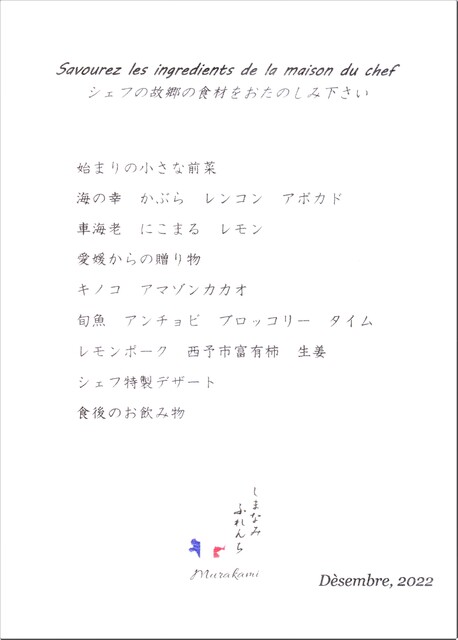 Savourez les ingredients de la maison du chef
シェフの故郷の食材をおたのしみ下さい
始まりの小さな前菜
海の幸　かぶら　レンコン　アボカド
車海老　にこまる　レモン
愛媛からの贈り物
キノコ　アマゾンカカオ
旬魚　アンチョビ　ブロッコリー　タイム
レモンポーク　西予市富有柿　生姜
シェフ特製デザート
食後のお飲み物
しまなみ
ふれんち
Murakami
Dèsembre, 2022